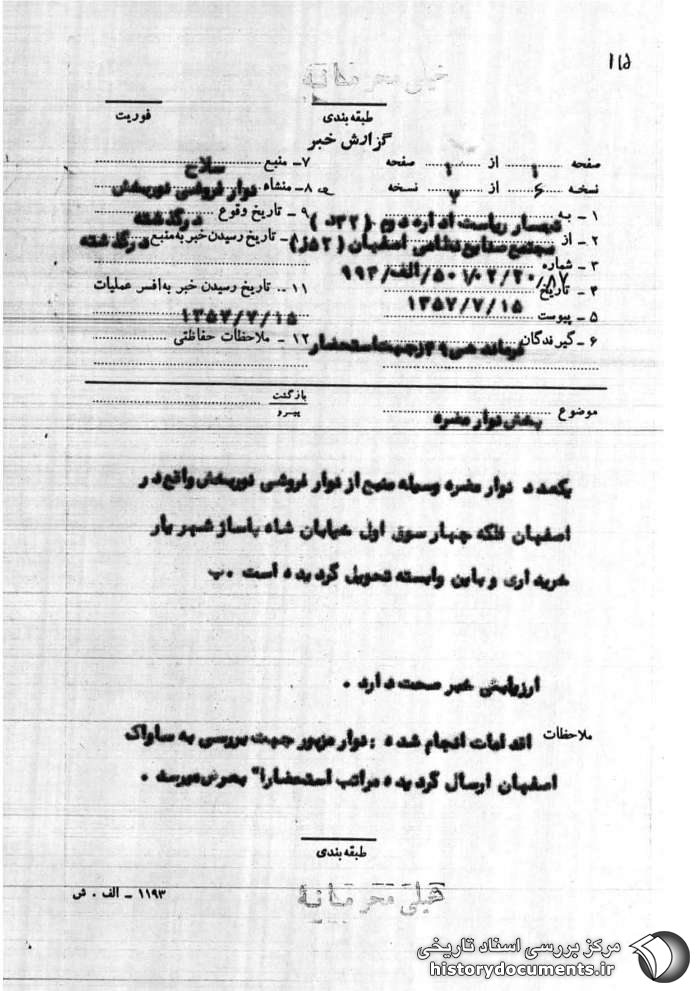 ۱۱۵
خیلی محرمانه
طبقه‌بندی
فوریت
گزارش خبر
صفحه ۱ از ۱ صفحه
۷- منبع سلاح
نسخه ۶ از ۷ نسخه
۸- منشاء نوار فروشی نوربخش
۱- به تیمسار ریاست اداره دوم (۳۲د)
۹- تاریخ وقوع درگذشته
۲- از مجتمع صنایع نظامی اصفهان (۵۲ز)
۱۰- تاریخ رسیدن خبر به منبع درگذشته
۳- شماره ۹۹۴/الف/۵۰۱/۰۲/۲۰/۸۷
۴- تاریخ ۱۳۵۷/۷/۱۵
۱۱- تاریخ رسیدن خبر به افسر عملیات
۵- پیوست
۱۳۵۷/۷/۱۵
۶- گیرندگان فرماندهی ۳۹ز جهت استحضار
۱۲- ملاحظات حفاظتی
بازگشت
پیرو
موضوع پخش نوار مضره
یکعدد نوار مضره وسیله منبع از نوار فروشی نوربخش واقع در
اصفهان فلکه چهار سوق اول خیابان شاه پاساژ شهریار
خریداری و باین وابسته تحویل گردیده است .ب
ارزیابی خبر صحت دارد .
ملاحظات اقدامات انجام شده : نوار مزبور جهت بررسی به ساواک
اصفهان ارسال گردیده مراتب استحضارا" بعرض میرسد .
طبقه‌بندی
خیلی محرمانه
۱۱۹۳ - الف . ش
مرکز بررسی اسناد تاریخی
historydocuments.ir